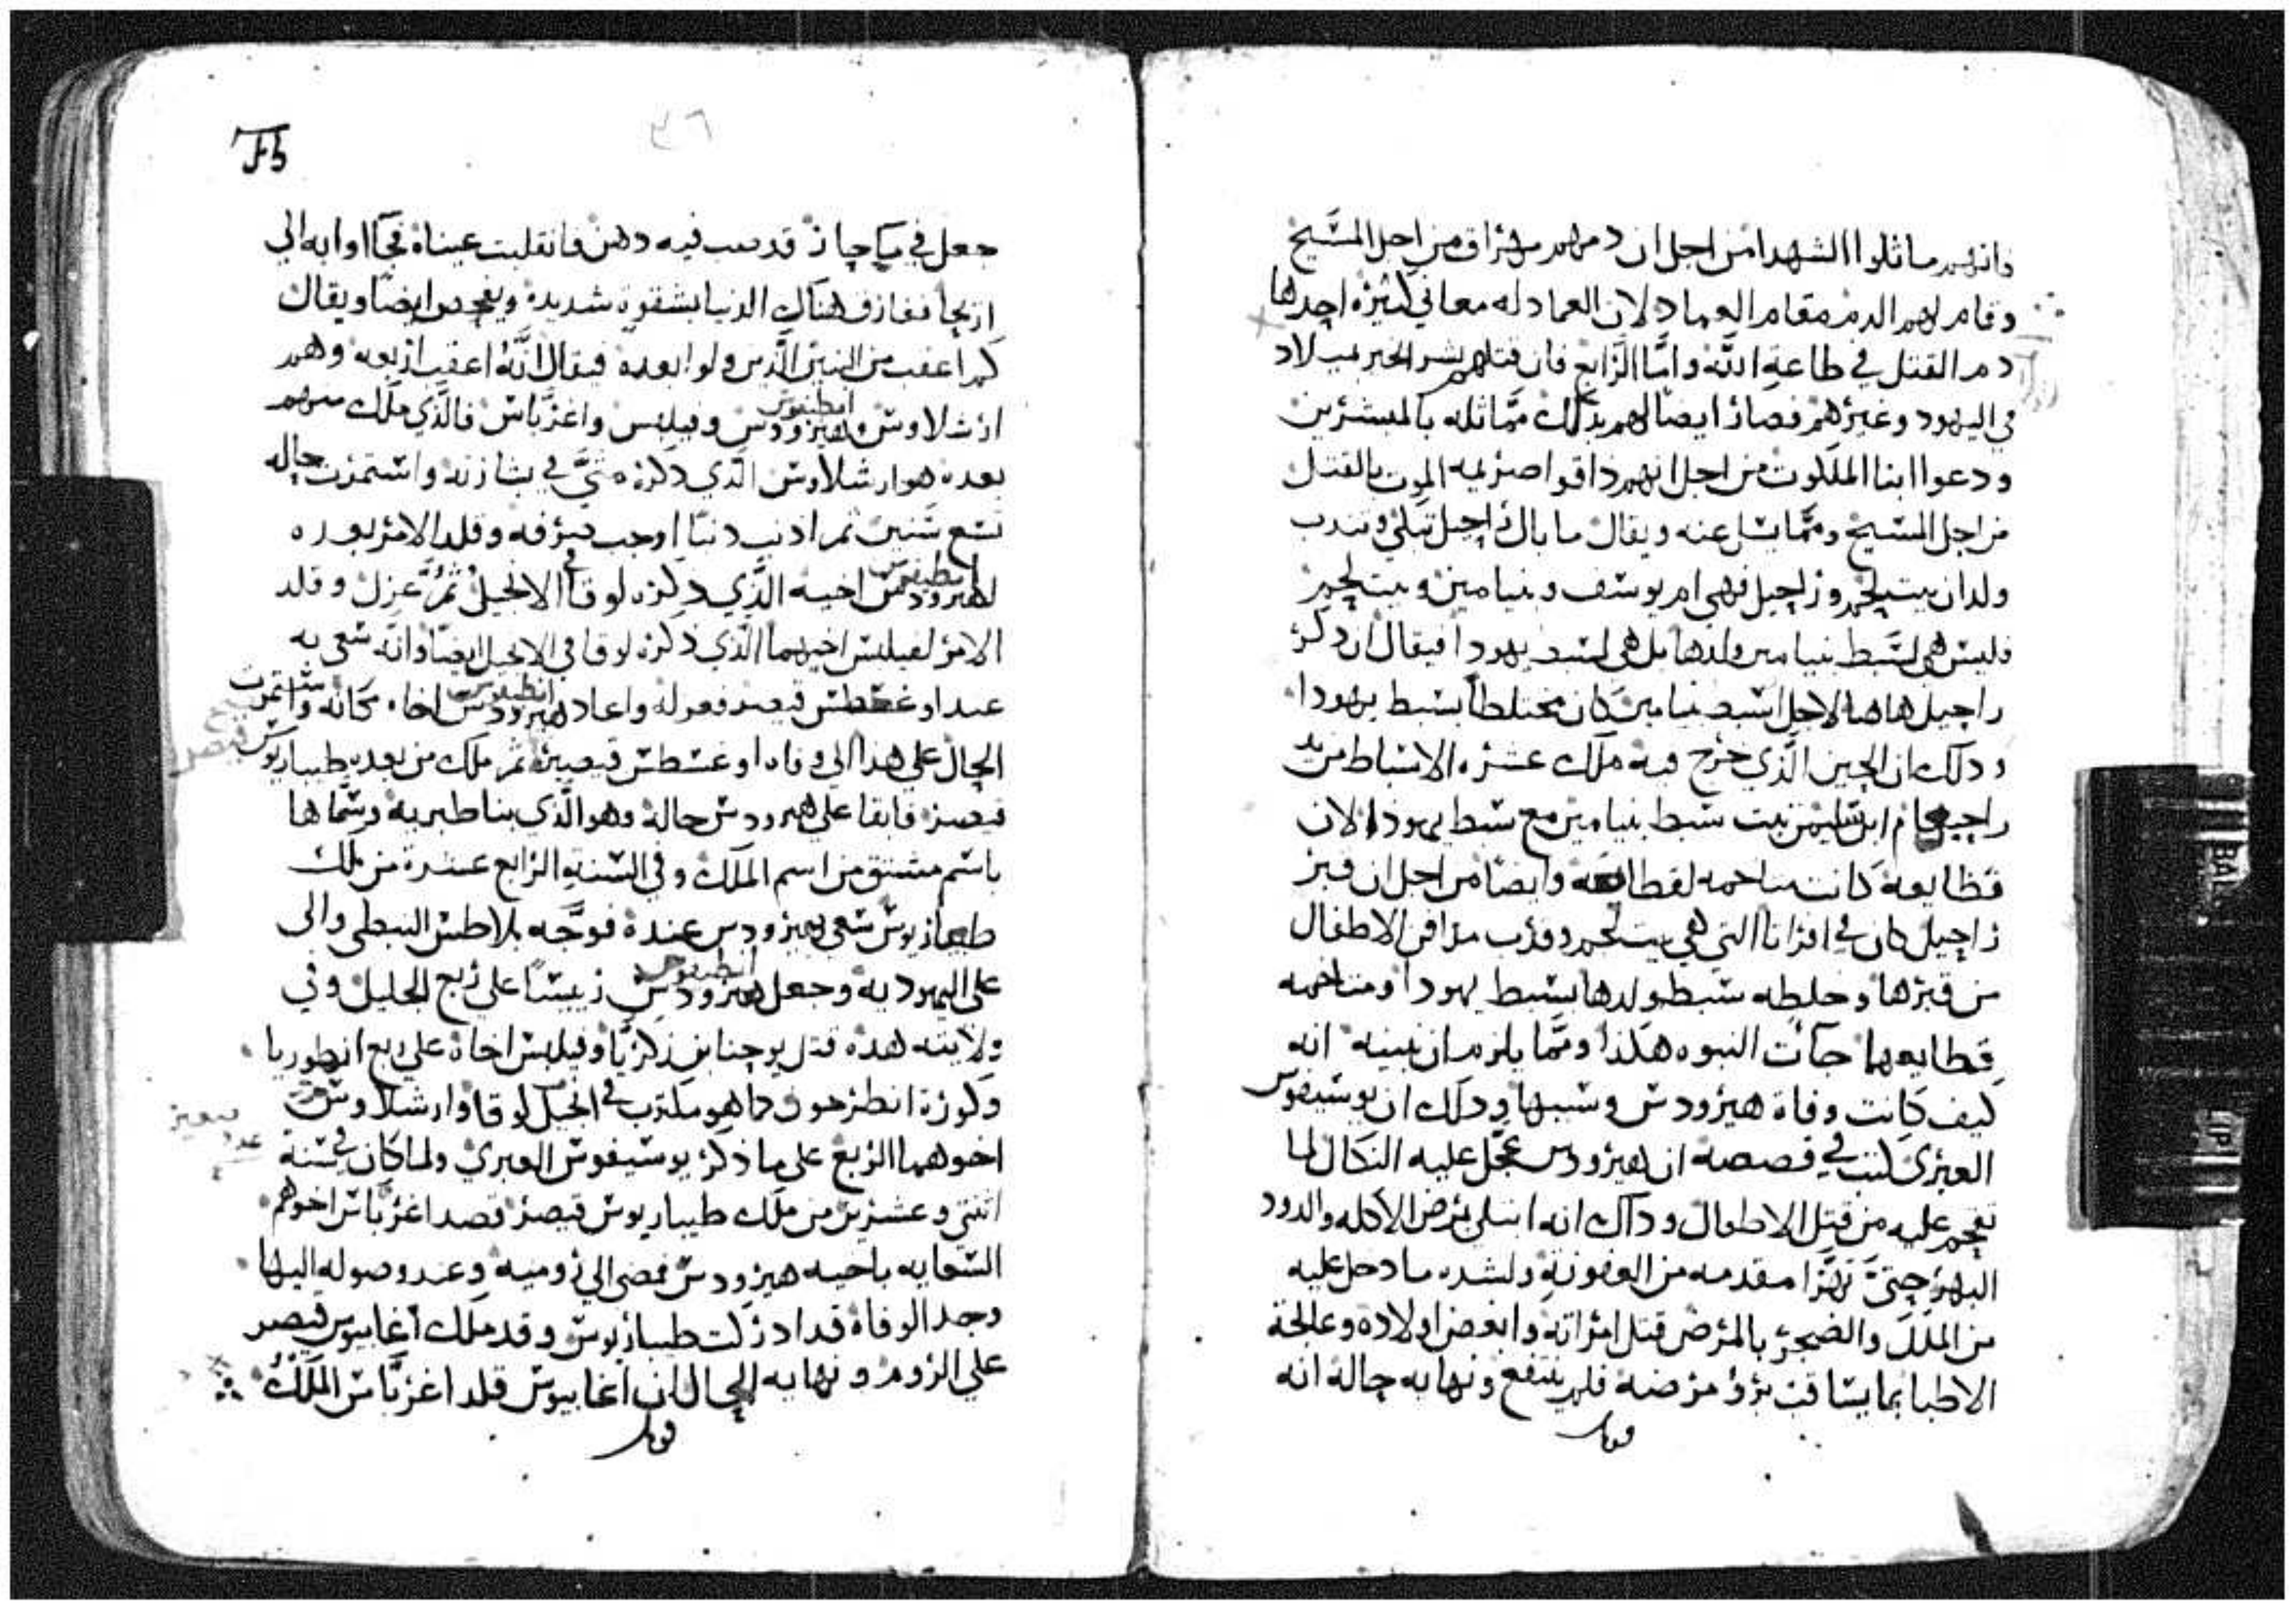 وانهم ماثلوا الشهدا من اجل ان دمهم مهراق من اجل المسيح
وقام لهم الدم مقام العماد لان العماد له معاني كثيره احدها
دم القتل في طاعة الله واما الرابع فان قتلهم نشر الخبر بميلاد
في اليهود وغيرهم فصار ايضا لهم بذلك مماثله بالمبشرين
ودعوا ابنا الملكوت من اجل انهم ذاقوا صريمه الموت بالقتل
من اجل المسيح ومما يسل عنه ويقال ما بال راحيل تبكي وتندب
ولدان بيت لحم وراحيل فهي ام يوسف وبنيامين وبيت لحم
فليس هي لسبط بنيامين ولدها بل هي لسبط يهودا فيقال ان ذكر
راحيل هاهنا لاجل سبط بنيامين كان مختلطا بسبط يهودا
ودلك ان الحين الذي خرج فيه ملك عشره الاسباط من يد
راحبعام ابن سليمن بيت سبط بنيامين مع سبط يهودا لان
قطايعه كانت متاخمه لقطايعه وايضا من اجل ان قبر
راحيل كان في افراتا التي هي بيت لحم وقرب مرافن الاطفال
من قبرها وخلطه سبط ولدها بسبط يهودا ومتاخمه
قطايعهما جآت النبوه هكذا ومما يلزم ان نبينه انه
كيف كانت وفاة هيرودس وسببها ودلك ان يوسيفوس
العبري كتب في قصصه ان هيرودس عجل عليه النكال لما
تهجم عليه من قتل الاطفال وداك انه ابتلي بمرض الاكله والدود
البهر حتى تهرا مقدمه من العفونة ولشده ما دخل عليه
من الملل والضجر بالمرض قتل امراته وابغض اولاده وعالجة
الاطبا بما يساقت برؤ مرضه فلم ينتفع ونهايه حاله انه
قوبل
٣٦
جعل في قد صب فيه دهن فانقلبت عيناه فجآ اوا به الى
اريحا ففارق هناك الدنيا بشقوة شديدة ويفحص ايضا ويقال
كم اعقب من البنين الذين ولوا بعده فيقال انه اعقب اربعه وهم
ارشلاوش وهيرودس وفيلبس واغرباس فالذي ملك منهم
انطيفوس
بعده هو ارشلاوش الذي ذكره متى في بشارته واستمرت حاله
تسع سنين ثم ادنب دنبا اوجب صرفه وقلد الامر بعده
لهيرودس اخيه الذي ذكره لوقا في الانجيل ثم عزل وقلد
انطيفوس
الامر لفيلبس اخيهما الذي ذكره لوقا في الانجيل ايضا وانه سعى به
عند اوغسطس قيصر فعزله واعاد هيرودس اخاه مكانه واستمرت
انطيفوس
الحال على هذا الى وفاه اوغسطس قيصر ثم ملك من بعده طيباريوس
قيصر فابقا على هيرودس حاله وهو الذي بنا طبريه وسماها
باسم مشتق من اسم الملك وفي السنة الرابع عشرة من ملك
طيباريوس سعي بهيرودس عنده فوجه بلاطس النبطي والى
على اليهوديه وجعل هيرودس رييسا على ربع الجليل وفي
انطيفوس
ولايته هذه قتل يوحنا بن زكريا وفيلبس اخاه على ربع انطوريا
وكورة انطرخون كما هو مكتوب في انجيل لوقا وارشلاوش
اخوهما الربع على ما ذكر يوسيفوس العبري ولما كان في سنة
اتنتي وعشرين من ملك طيباريوس قيصر قصد اغرباس اخوهم
السعايه باخيه هيرودس فمضى الى روميه وعند وصوله اليها
وجد الوفاة قد ادركت طيباريوس وقد ملك اغابيوس قيصر
على الروم ونهايه الحال ان اغابيوس قلد اغرباس الملك
قوبل